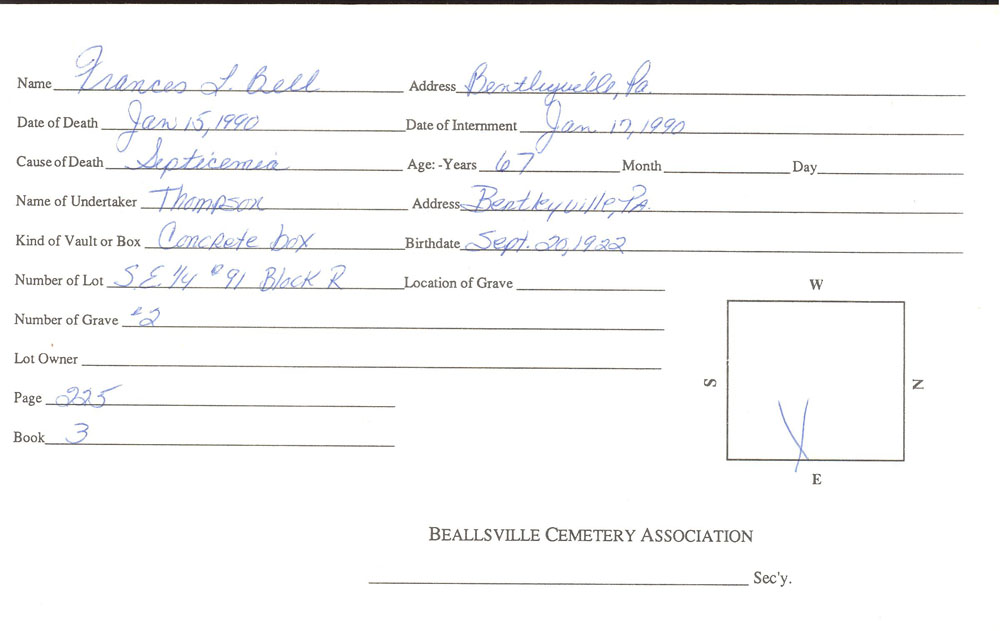 Name Frances L. Bell Address Bentleyville, Pa.
Date of Death Jan 15, 1990 Date of Internment Jan 17, 1990
Cause of Death Septicemia Age: -Years 67 Month Day
Name of Undertaker Thompson Address Bentleyville, PA.
Kind of Vault or Box Concrete box Birthdate Sept. 20, 1922
Number of Lot S.E. 1/4 # 91 Block R Location of Grave
Number of Grave #2
Lot Owner
Page 225
Book 3
W
S
N
E
BEALLSVILLE CEMETERY ASSOCIATION
Sec'y.